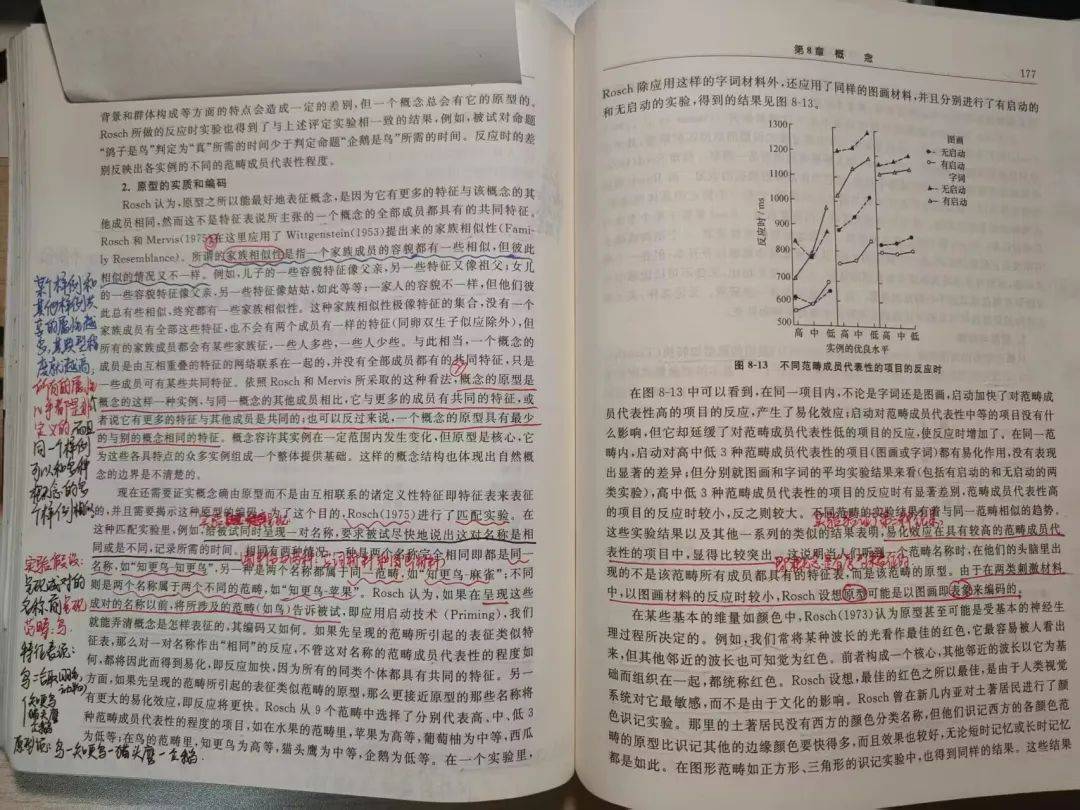 背景和群体构成等方面的特点会造成一定的差别,但一个概念总会有它的原型的。
Rosch 所做的反应时实验也得到了与上述评定实验相一致的结果,例如,被试对命题
“鸽子是鸟”判定为“真”所需的时间少于判定命题“企鹅是鸟”所需的时间。反应时的差
别反映出各实例的不同的范畴成员代表性程度。
2. 原型的实质和编码
Rosch 认为,原型之所以能最好地表征概念,是因为它有更多的特征与该概念的其
他成员相同,然而这不是特征表说所主张的一个概念的全部成员都具有的共同特征。
Rosch 和 Mervis(1975)在这里应用了 Wittgenstein(1953)提出来的家族相似性(Fami-
ly Resemblance)。所谓的家族相似性是指一个家族成员的容貌都有一些相似,但彼此
相似的情况又不一样。例如,儿子的一些容貌特征像父亲,另一些特征又像祖父;女儿
的一些容貌特征像父亲,另一些特征像姑姑,如此等等;一家人的容貌不一样,但他们彼
此总有些相似,终究都有一些家族相似性。这种家族相似性极像特征的集合,没有一个
家族成员有全部这些特征,也不会有两个成员有一样的特征(同卵双生子似应除外),但
所有的家族成员都会有某些家族征,一些人多些,一些人少些。与此相当,一个概念的
成员是由互相重叠的特征的网络联系在一起的,并没有全部成员都有的共同特征,只是
一些成员可有某些共同特征。依照 Rosch 和 Mervis 所采取的这种看法,概念的原型是
概念的这样一种实例,与同一概念的其他成员相比,它与更多的成员有共同的特征,或
者说它有更多的特征与其他成员是共同的;也可以反过来说,一个概念的原型具有最少
的与别的概念相同的特征。概念容许其实例在一定范围内发生变化,但原型是核心,它
为这些各具特点的众多实例组成一个整体提供基础。这样的概念结构也体现出自然概
念的边界是不清楚的。
现在还需要证实概念确由原型而不是由互相联系的诸定义性特征即特征表来表征
的,并且需要揭示这种原型的编码。为了这个目的,Rosch(1975)进行了匹配实验。在
这种匹配实验里,例如,给被试同时呈现一对名称,要求被试尽快地说出这对名称是相
同或是不同,记录所需的时间。相同有两种情况:一种是两个名称完全相同即都是同一
名称,如“知更鸟-知更鸟”,另一种是两个名称都属于同一范畴,如“知更鸟-麻雀”;不同
则是两个名称属于两个不同的范畴,如“知更鸟-苹果”。Rosch 认为,如果在呈现这些
成对的名称以前,将所涉及的范畴(如鸟)告诉被试,即应用启动技术(Priming),我们
就能弄清概念是怎样表征的,其编码又如何。如果先呈现的范畴所引起的表征类似特
征表,那么对一对名称作出“相同”的反应,不管这对名称的范畴成员代表性的程度如
何,都将因此而得到易化,即反应加快,因为所有的同类个体都具有共同的特征。另一
方面,如果先呈现的范畴所引起的表征类似范畴的原型,那么更接近原型的那些名称将
有更大的易化效应,即反应将更快。Rosch 从 9 个范畴中选择了分别代表高、中、低 3
种范畴成员代表性的程度的项目,如在水果的范畴里,苹果为高等,葡萄柚为中等,西瓜
为低等;在鸟的范畴里,知更鸟为高等,猫头鹰为中等,企鹅为低等。在一个实验里,
某个样例和
其他样例共
享的属性越
多,其原型
程度就越高,
定义的
而且
同一个样例
实验假设:
呈现成对的
名称,前呈现
范畴:鸟
特征表说:
知更鸟
猫头鹰
企鹅
原型说:鸟-知更鸟-猫头鹰-企鹅
第8章 概 念
177
Rosch 除应用这样的字词材料外,还应用了同样的图画材料,并且分别进行了有启动的
和无启动的实验,得到的结果见图 8-13。
1300
1200
1100
1000
900
800
700
600
500
反应时/ms
图画
无启动
有启动
字词
无启动
有启动
高 中 低 高 中 低 高 中 低
实例的优良水平
图 8-13 不同范畴成员代表性的项目的反应时
在图 8-13 中可以看到,在同一项目内,不论是字词还是图画,启动加快了对范畴成
员代表性高的项目的反应,产生了易化效应;启动对范畴成员代表性中等的项目没有什
么影响,但它却延缓了对范畴成员代表性低的项目的反应,使反应时增加了。在同一范
畴内,启动对高中低 3 种范畴成员代表性的项目(图画或字词)都有易化作用,没有表现
出显著的差异;但分别就图画和字词的平均实验结果来看(包括有启动的和无启动的两
类实验),高中低 3 种范畴成员代表性的项目的反应时有显著差别,范畴成员代表性高
的项目的反应时较小,反之则较大。不同范畴的实验结果有着与同一范畴相似的趋势。
这些实验结果以及其他一系列的类似的结果表明,易化效应在具有较高的范畴成员代
表性的项目中,显得比较突出。这说明当人们听到一个范畴名称时,在他们的头脑里出
现的不是该范畴所有成员都具有的特征表,而是该范畴的原型。由于在两类刺激材料
中,以图画材料的反应时较小,Rosch 设想原型可能是以图画即表象来编码的。
在某些基本的维量如颜色中,Rosch(1973)认为原型甚至可能是受基本的神经生
理过程所决定的。例如,我们常将某种波长的光看作最佳的红色,它最容易被人看出
来,但其他邻近的波长也可知觉为红色。前者构成一个核心,其他邻近的波长以它为基
础而组织在一起,都统称红色。Rosch 设想,最佳的红色之所以最佳,是由于人类视觉
系统对它最敏感,而不是由于文化的影响。Rosch 曾在新几内亚对土著居民进行了颜
色识记实验。那里的土著居民没有西方的颜色分类名称,但他们识记西方的各颜色范
畴的原型比识记其他的边缘颜色要快得多,而且效果也较好,无论短时记忆或长时记忆
都是如此。在图形范畴如正方形、三角形的识记实验中,也得到同样的结果。这些结果